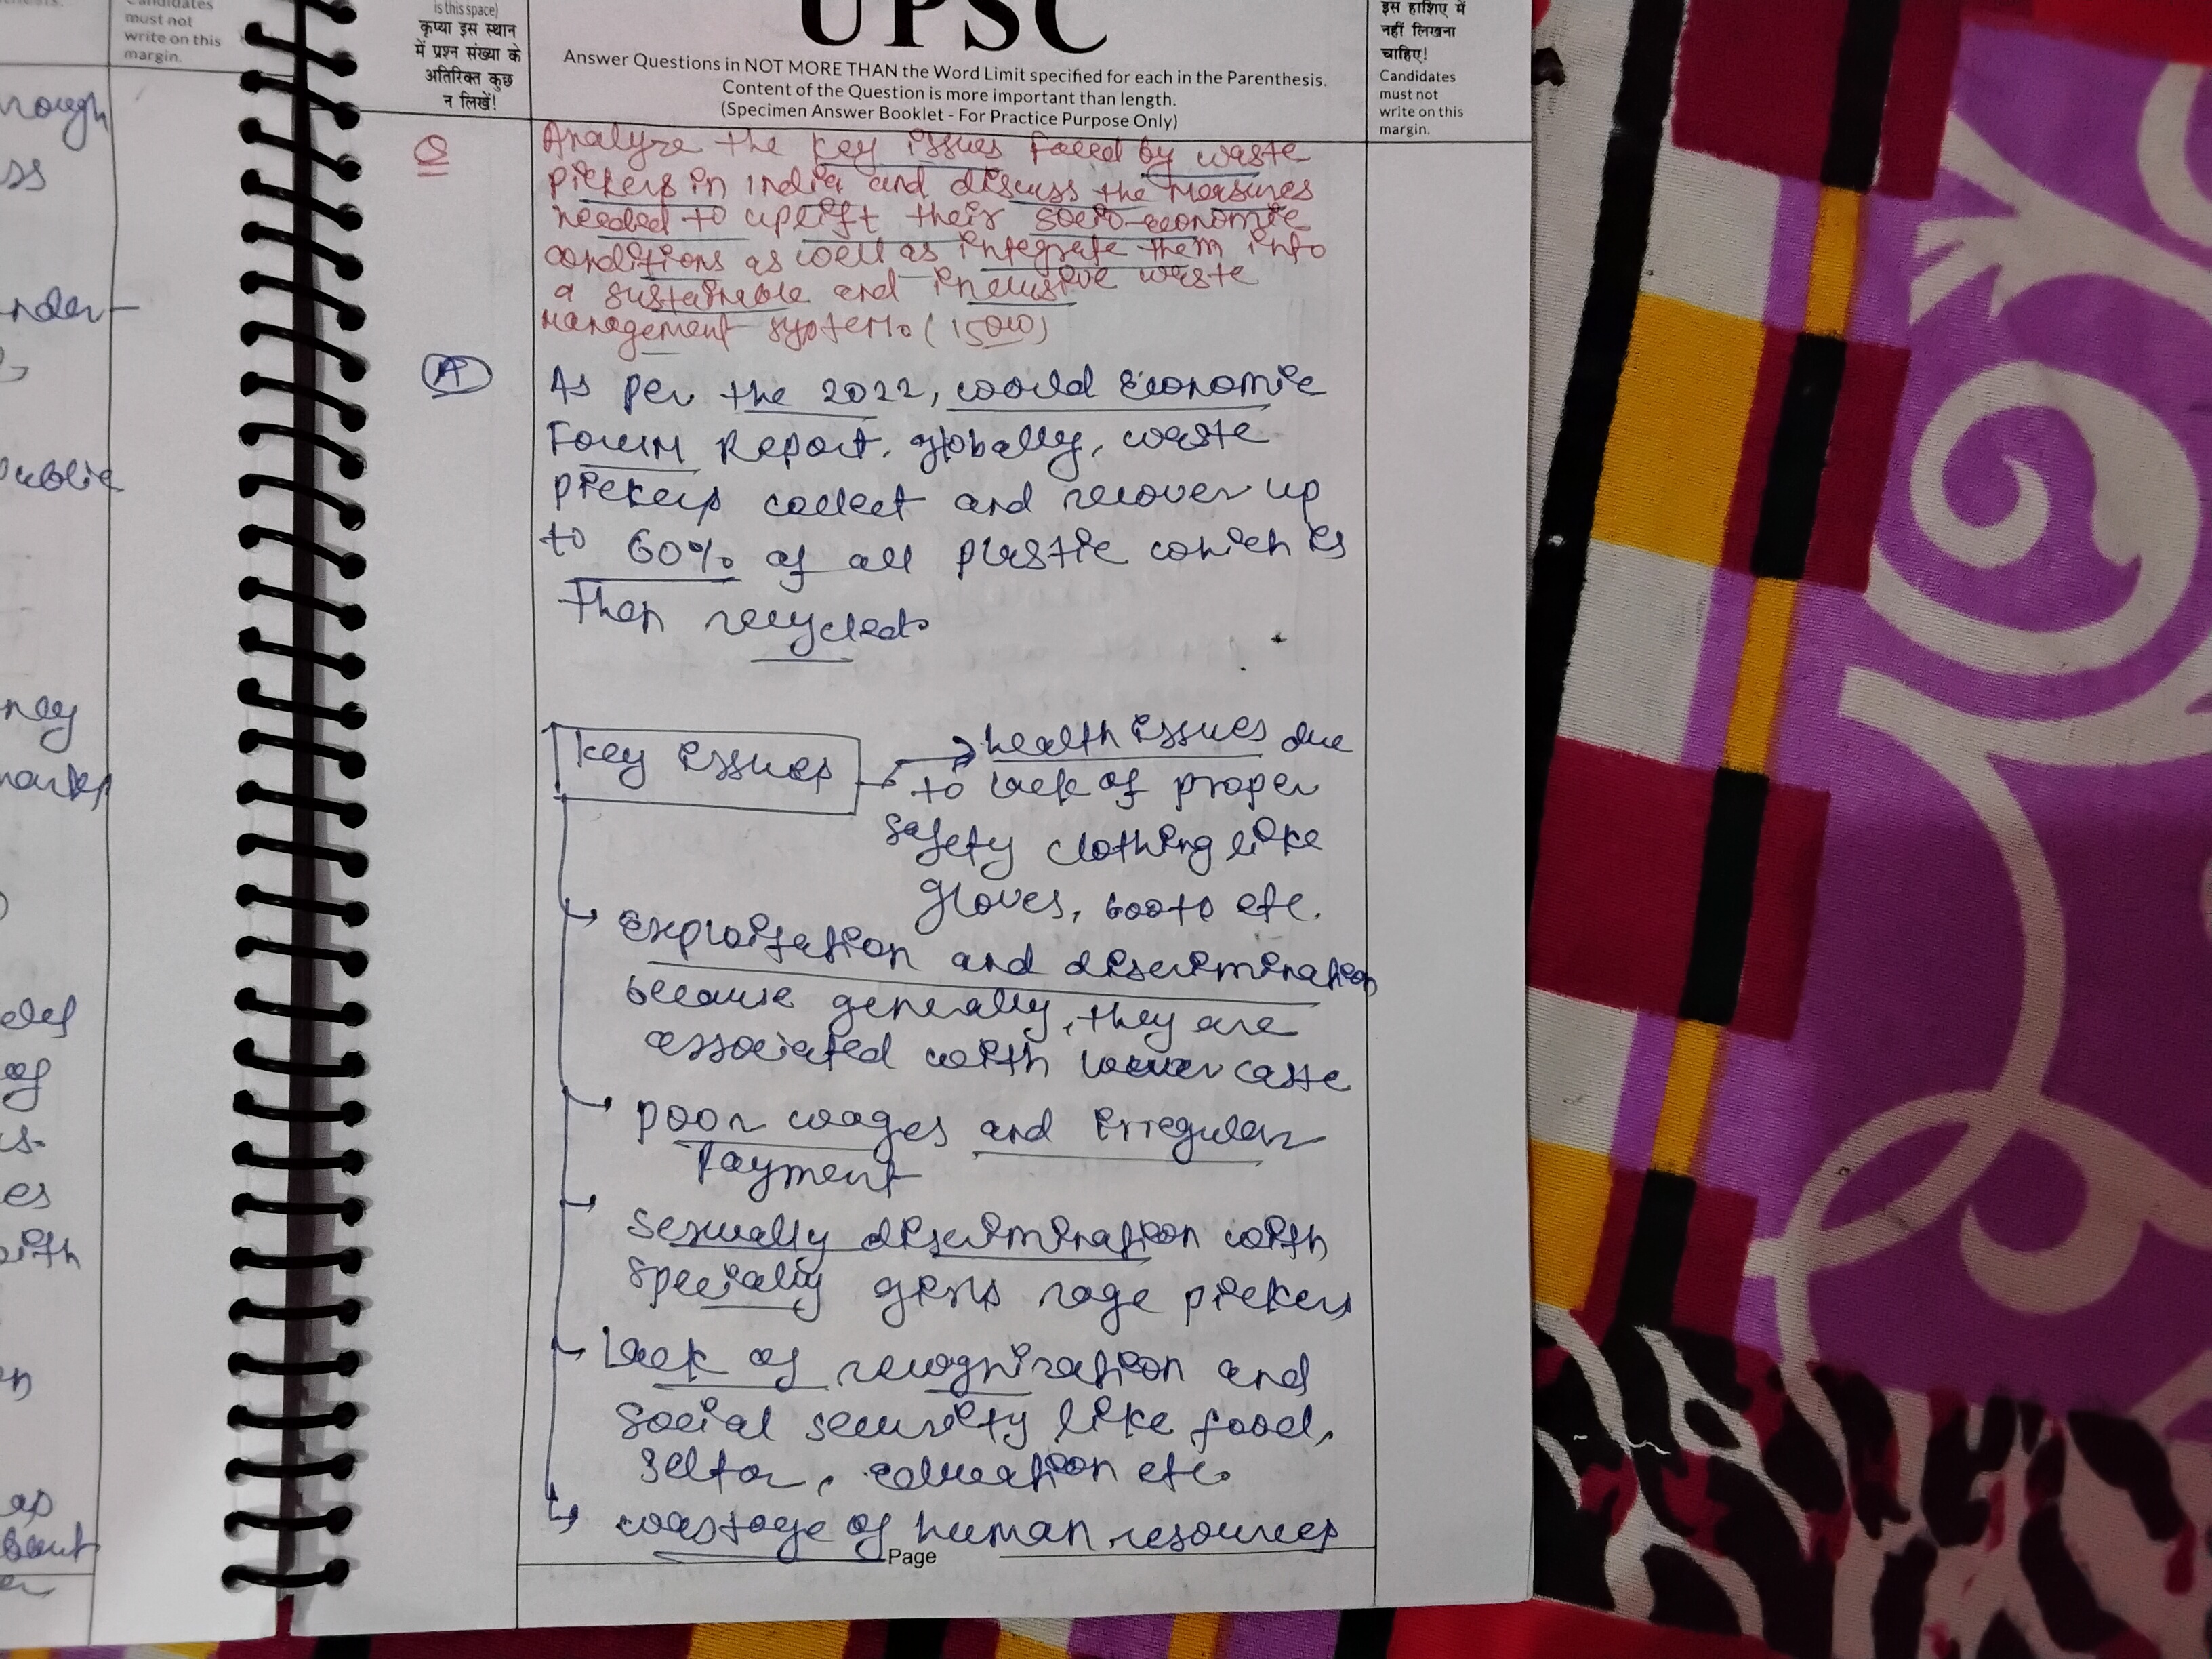 Candidates
must not
write on this
margin.
is this space)
कृप्या इस स्थान
में प्रश्न संख्या के
अतिरिक्त कुछ
न लिखें!
UPSC
Answer Questions in NOT MORE THAN the Word Limit specified for each in the Parenthesis.
Content of the Question is more important than length.
(Specimen Answer Booklet - For Practice Purpose Only)
इस हाशिए में
नहीं लिखना
चाहिए!
Candidates
must not
write on this
margin.
Q
Analyze the key issues faced by waste
pickers in India and discuss the measures
needed to uplift their socio-economic
conditions as well as integrate them into
a sustainable and inclusive waste
management system. (150w)
A
As per the 2022, world Economic
Forum Report, globally, waste
pickers collect and recover up
to 60% of all plastic which is
then recycled.
key issues
health issues due
to lack of proper
safety clothing like
gloves, boots etc.
Exploitation and discrimination
because generally, they are
associated with lower caste
poor wages and irregular
payment
Sexually discrimination with
specially girls rage pickers
Lack of recognization and
social security like food,
seltor, education etc.
wastage of human resources
Page